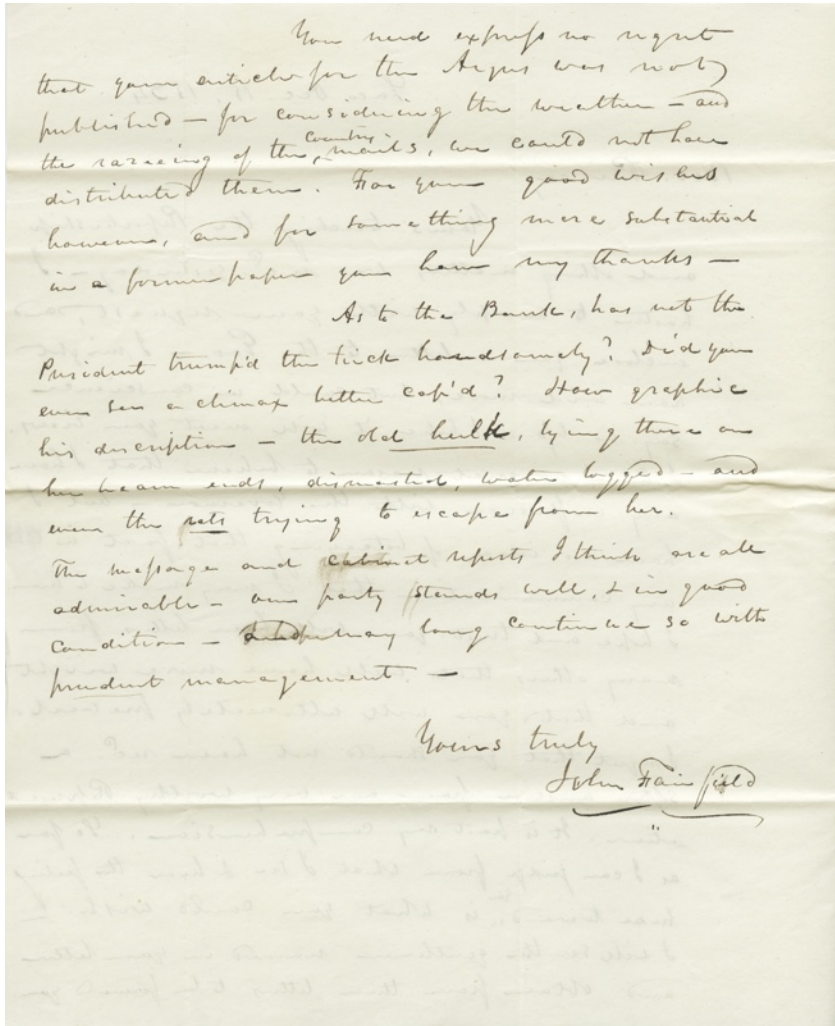 You need express no regret
that your article for the Argus was not
published – for considering the weather – and
the of the country mails, we could not have
distributed them. For your good wishes
however, and for something more substantial
in a former paper you have my thanks –
As to the Bank, has not the
President trump'd the trick handsomely? Did you
ever see a climax better cap'd? How graphic
his description – the old hulk, lying there on
her beam ends, dismasted, water logged – and
even the rats trying to escape from her.
The message and cabinet reports I think are all
admirable – our party stands well, & in good
condition – may long continue so with
prudent management –
Yours truly
John Fairfield